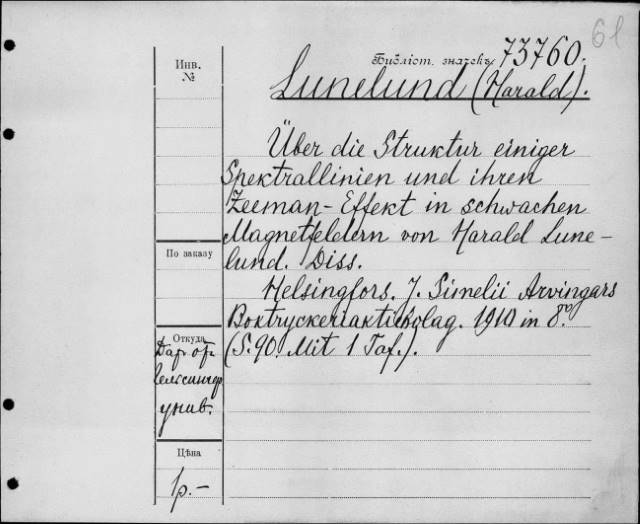 61
Инв.
№
Библіот. значекъ 73760.
Lunelund (Harald).
Über die Struktur einiger
Spektrallinien und ihren
Zeeman-Effekt in schwachen
Magnetfeldern von Harald Lune-
lund. Diss.
По заказу
Helsingfors. J. Simelii Arvingars
Boktryckeriaktiebolag. 1910 in 8º.
(S. 90. Mit 1 Taf.).
Откуда
Дар от
Гельсингф
унив.
Цѣна
1р.-